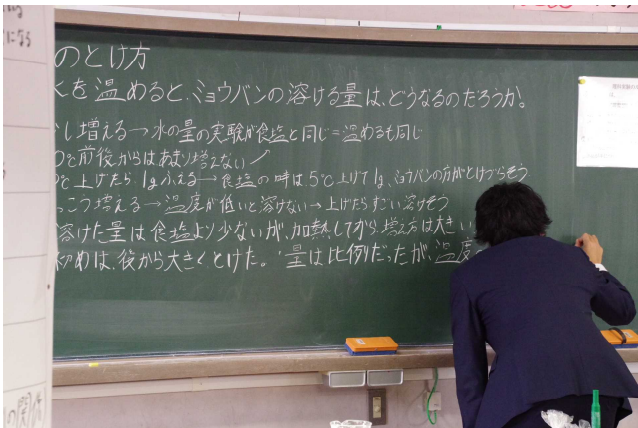 になる
のとけ方
を温めると、ミョウバンの溶ける量は、どうなるのだろうか。
し増える→水の量の実験が食塩と同じ=温めるも同じ
0℃前後からはあまり増えない
℃上げたら、1gふえる→食塩の時は、5℃上げて1g、ミョウバンの方がとけづらそう
っこう増える→温度が低いと溶けない→上げたらすごい溶けそう
溶けた量は食塩より少ないが、加熱してから、増え方は大きい
初めは、後から大きくとけた。量は比例だったが、温度
の関係